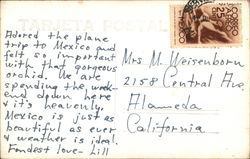 TARJETA POSTAL
Adored the plane
trip to Mexico and
felt so important
with that gorgeous
orchid. We are
spending the week-
end down here
& it's heavenly.
Mexico is just as
beautiful as ever
& weather is ideal.
Fondest love - Lill
Mrs M. Weisenborn
2158 Central Ave,
Alameda
California
CORREO
MEXICO